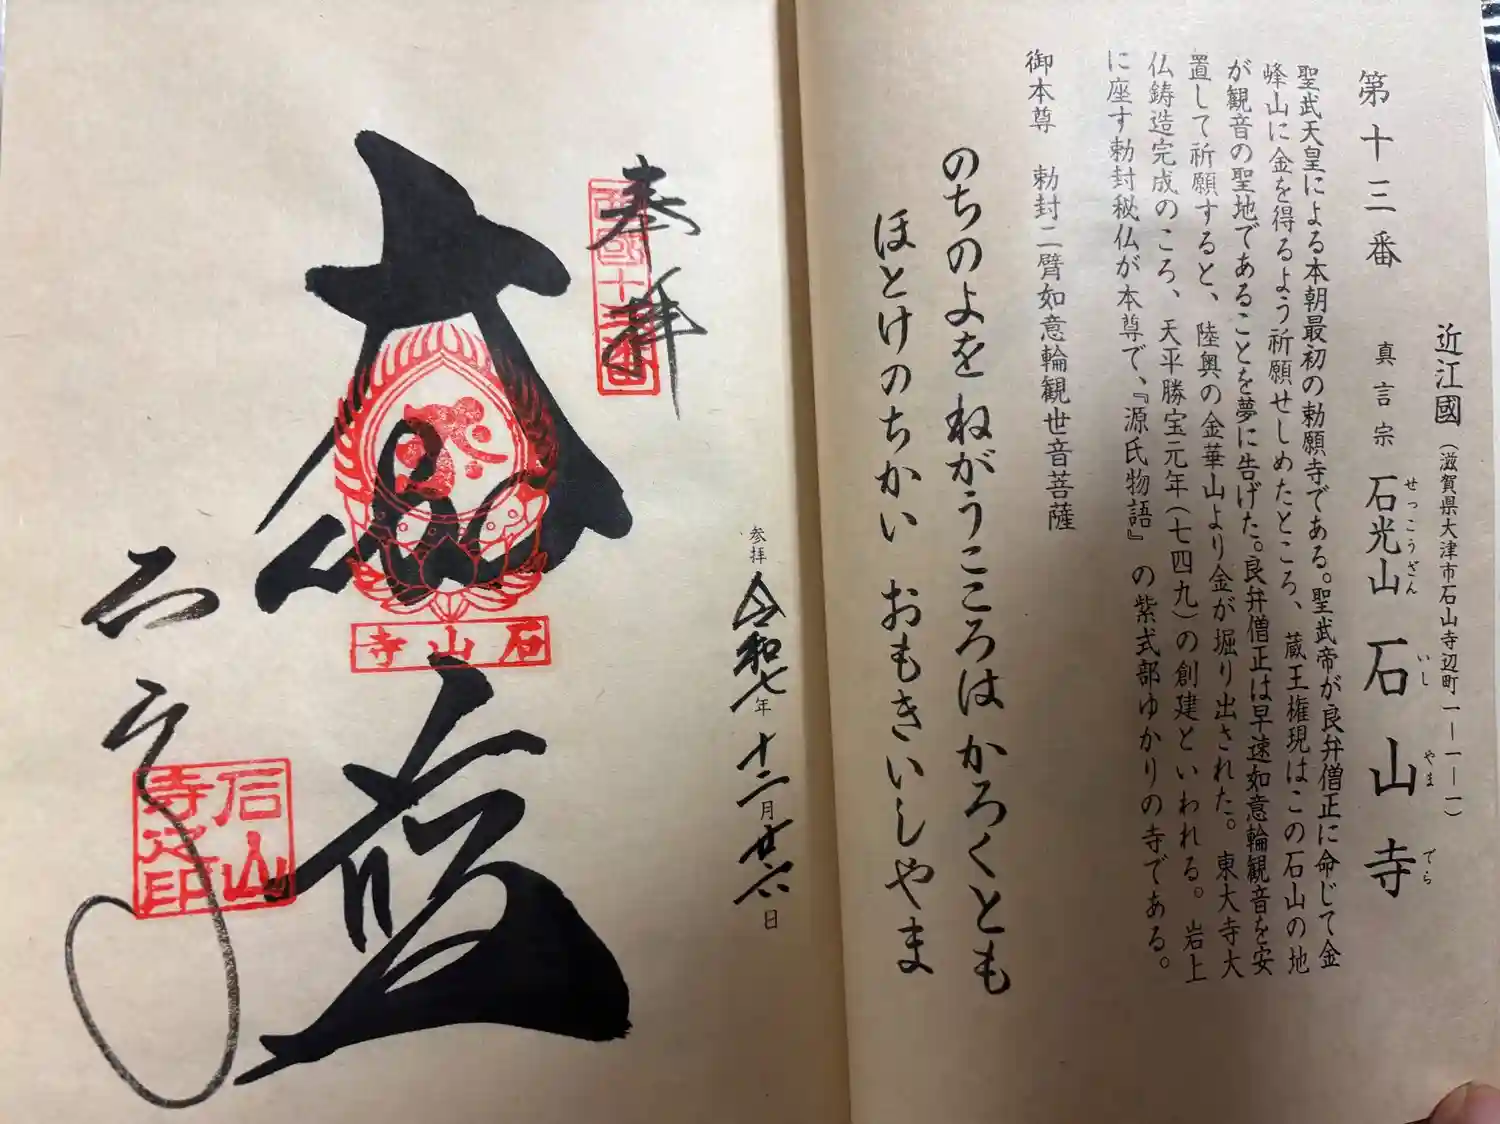 近江國（滋賀県大津市石山寺辺町一ー一ー一）
第十三番
真言宗
石光山
せっこうざん
石山寺
いしやまでら
聖武天皇による本朝最初の勅願寺である。聖武帝が良弁僧正に命じて金
峰山に金を得るよう祈願せしめたところ、蔵王権現はこの石山の地
が観音の聖地であることを夢に告げた。良弁僧正は早速如意輪観音を安
置して祈願すると、陸奥の金華山より金が堀り出された。東大寺大
仏鋳造完成のころ、天平勝宝元年（七四九）の創建といわれる。岩上
に座す勅封秘仏が本尊で、『源氏物語』の紫式部ゆかりの寺である。
御本尊　勅封二臂如意輪観世音菩薩
のちのよを ねがうこころは かろくとも
ほとけのちかい おもきいしやま
参拝 令和七年十二月廿六日
奉拝
西國十三番
大悲殿
石山寺
石山寺
石山寺之印